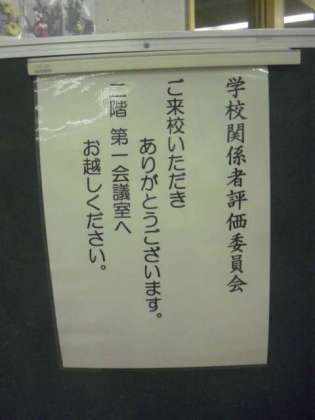 学校関係者評価委員会
ご来校いただき
ありがとうございます。
二階 第一会議室へ
お越しください。